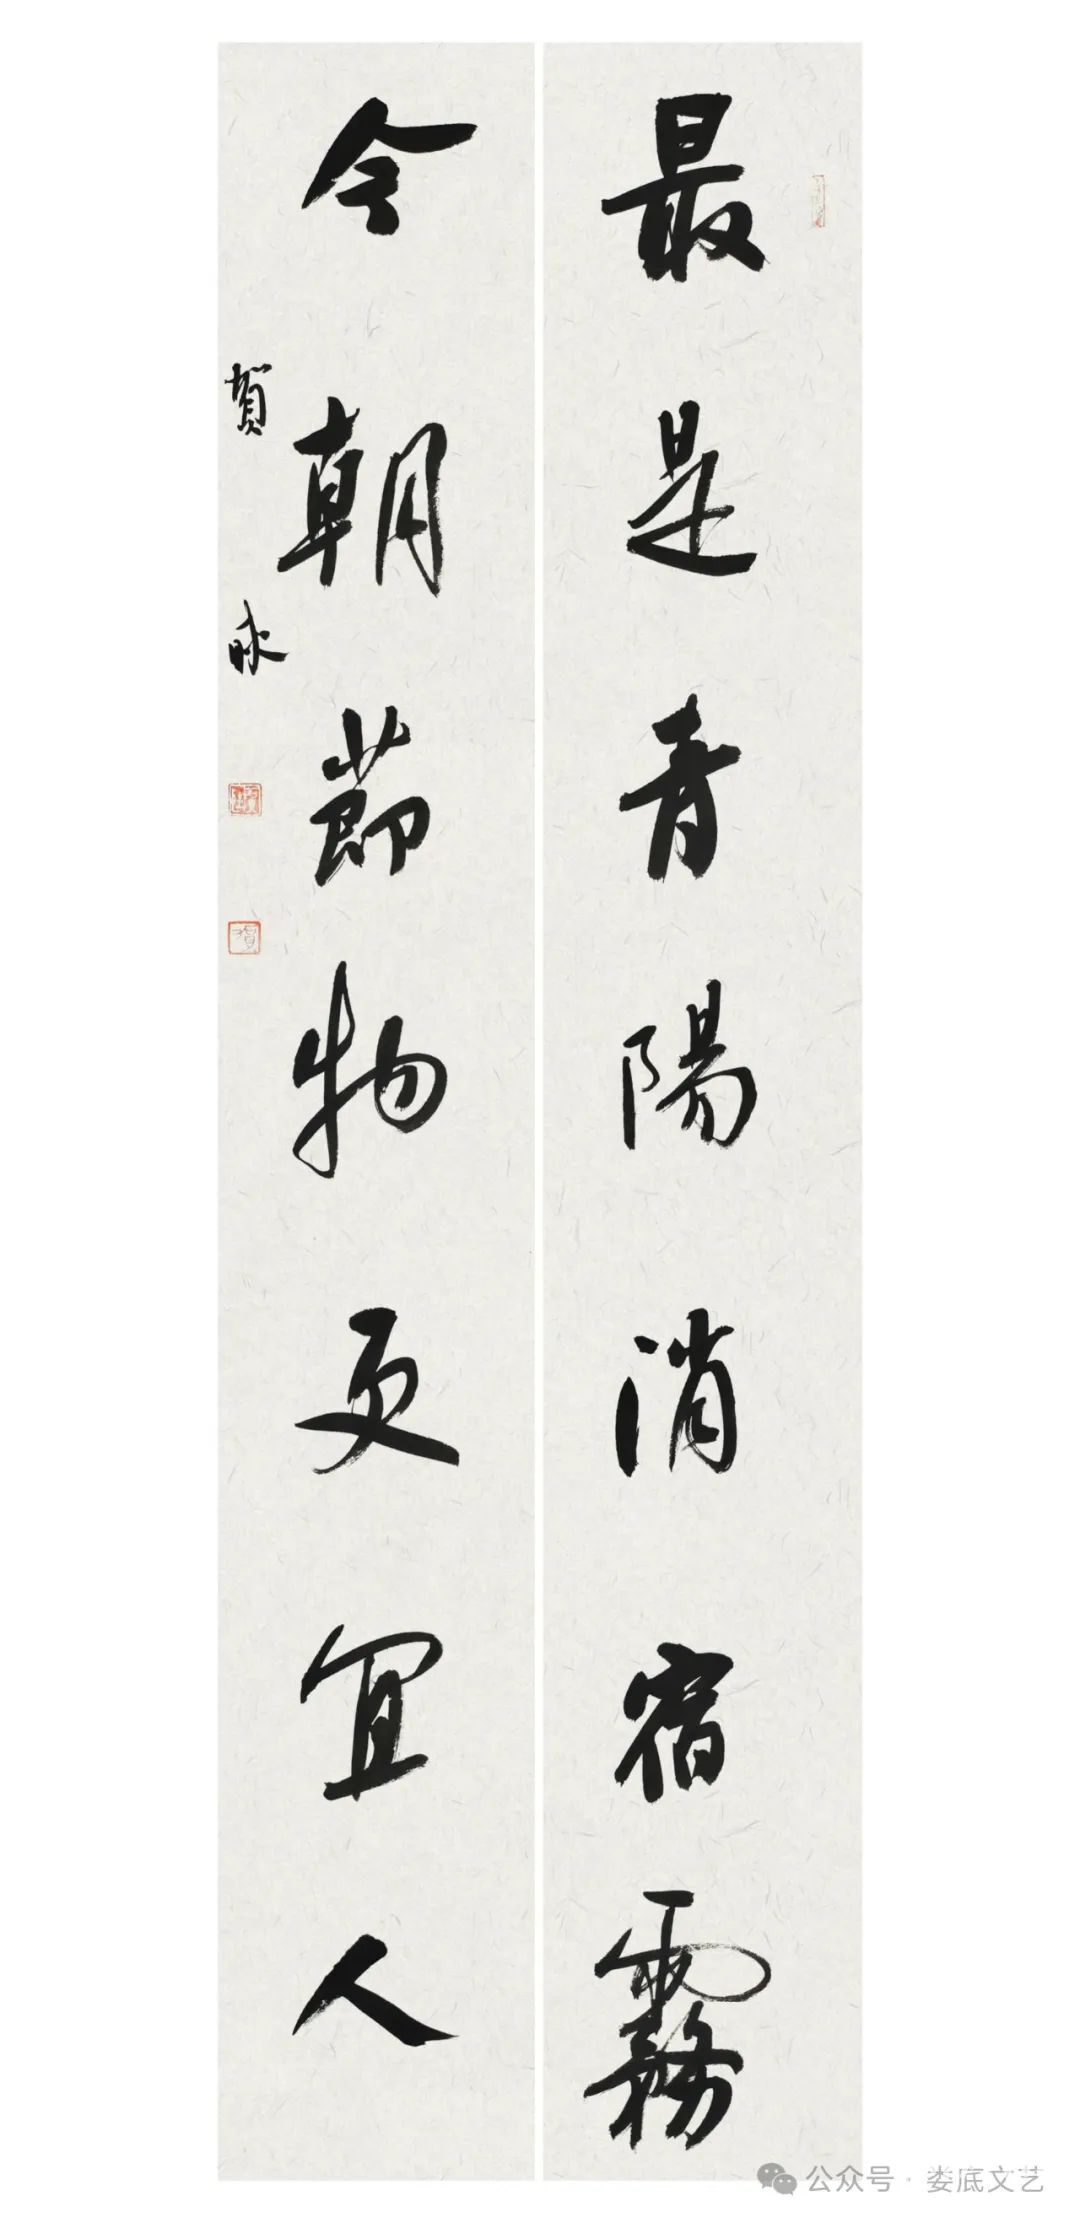 最是青陽消宿霧
今朝節物更宜人
賀
公众号·娄底文艺